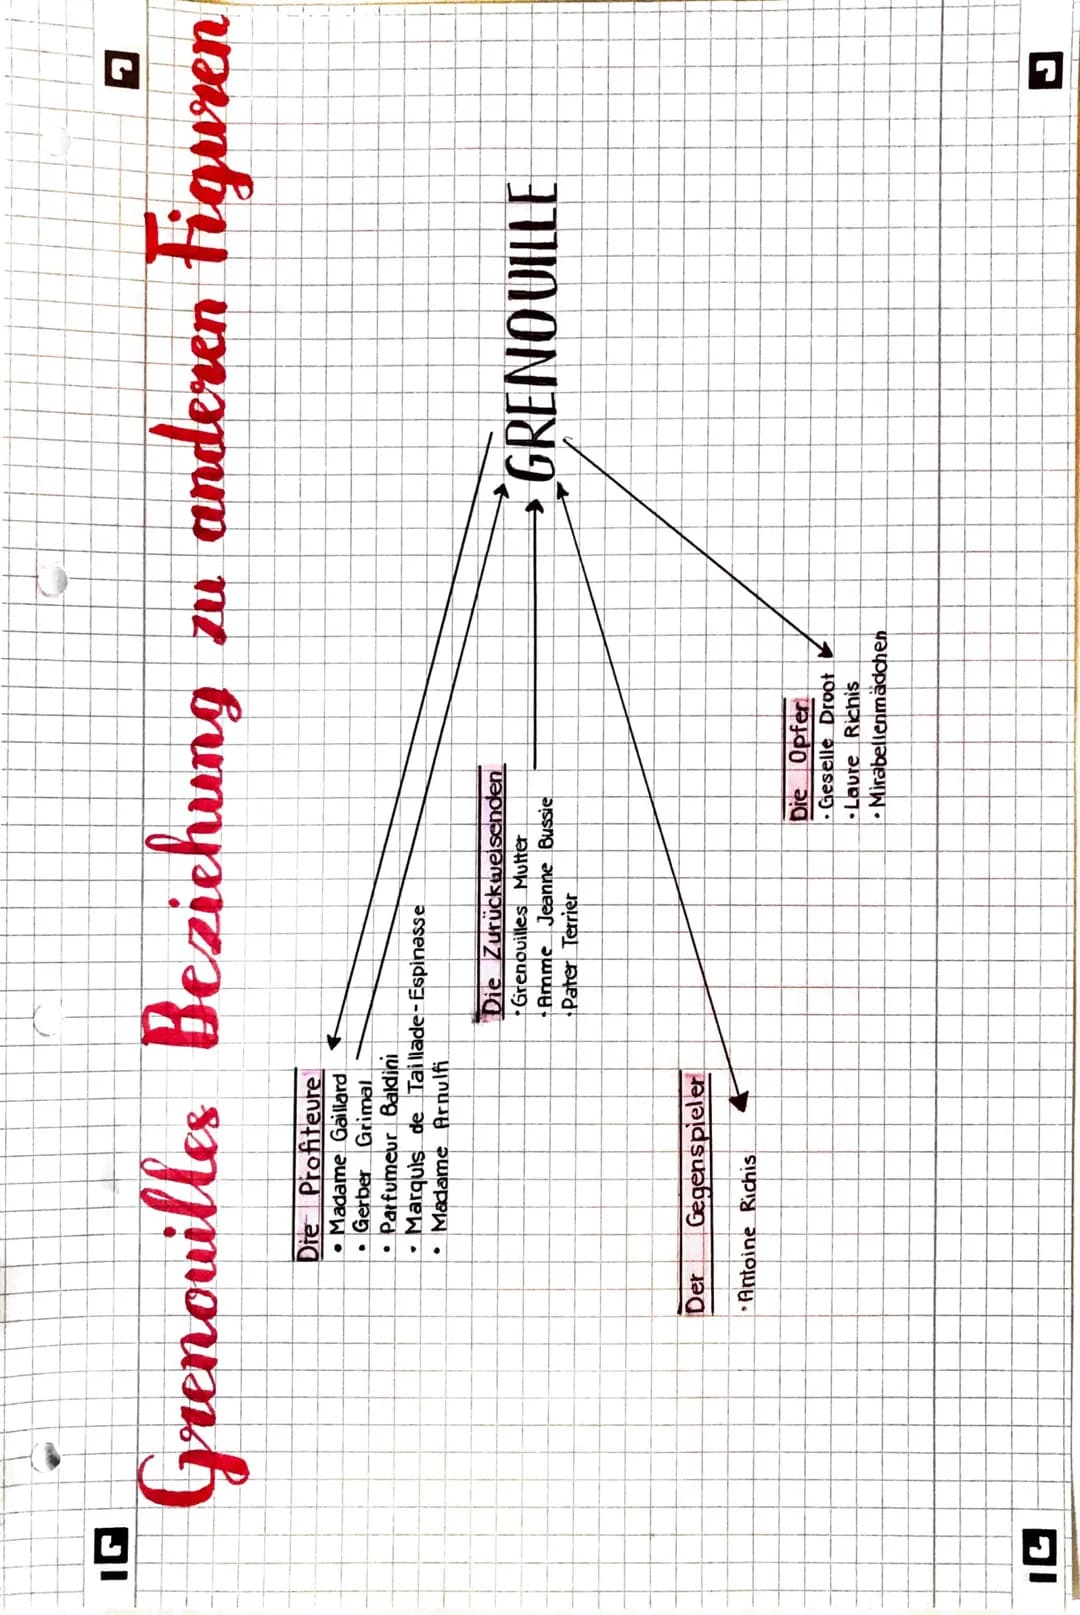 Grenouilles Beziehung zu anderen Figuren
Die Profiteure
• Madame Gaillard
• Gerber Grimal
• Parfumeur Baldini
• Marquis de Taillade-Espinasse
• Madame Arnulfi
Die Zurückweisenden
• Grenouilles Mutter
• Amme Jeanne Bussie
• Pater Terrier
GRENOUILLE
Der Gegenspieler
• Antoine Richis
Die Opfer
• Geselle Droot
• Laure Richis
• Mirabellenmädchen